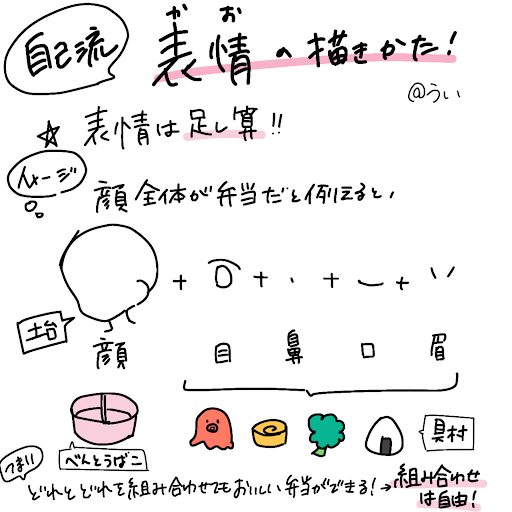 自己流
かお
表情の描きかた!
@うい
☆表情は足し算!!
イメージ
顔全体が弁当だと例えると、
+ + + +
土台
顔 目 鼻 口 眉
べんとうばこ
具材
つまり
どれとどれを組み合わせてもおいしい弁当ができる!→組み合わせ
は自由!